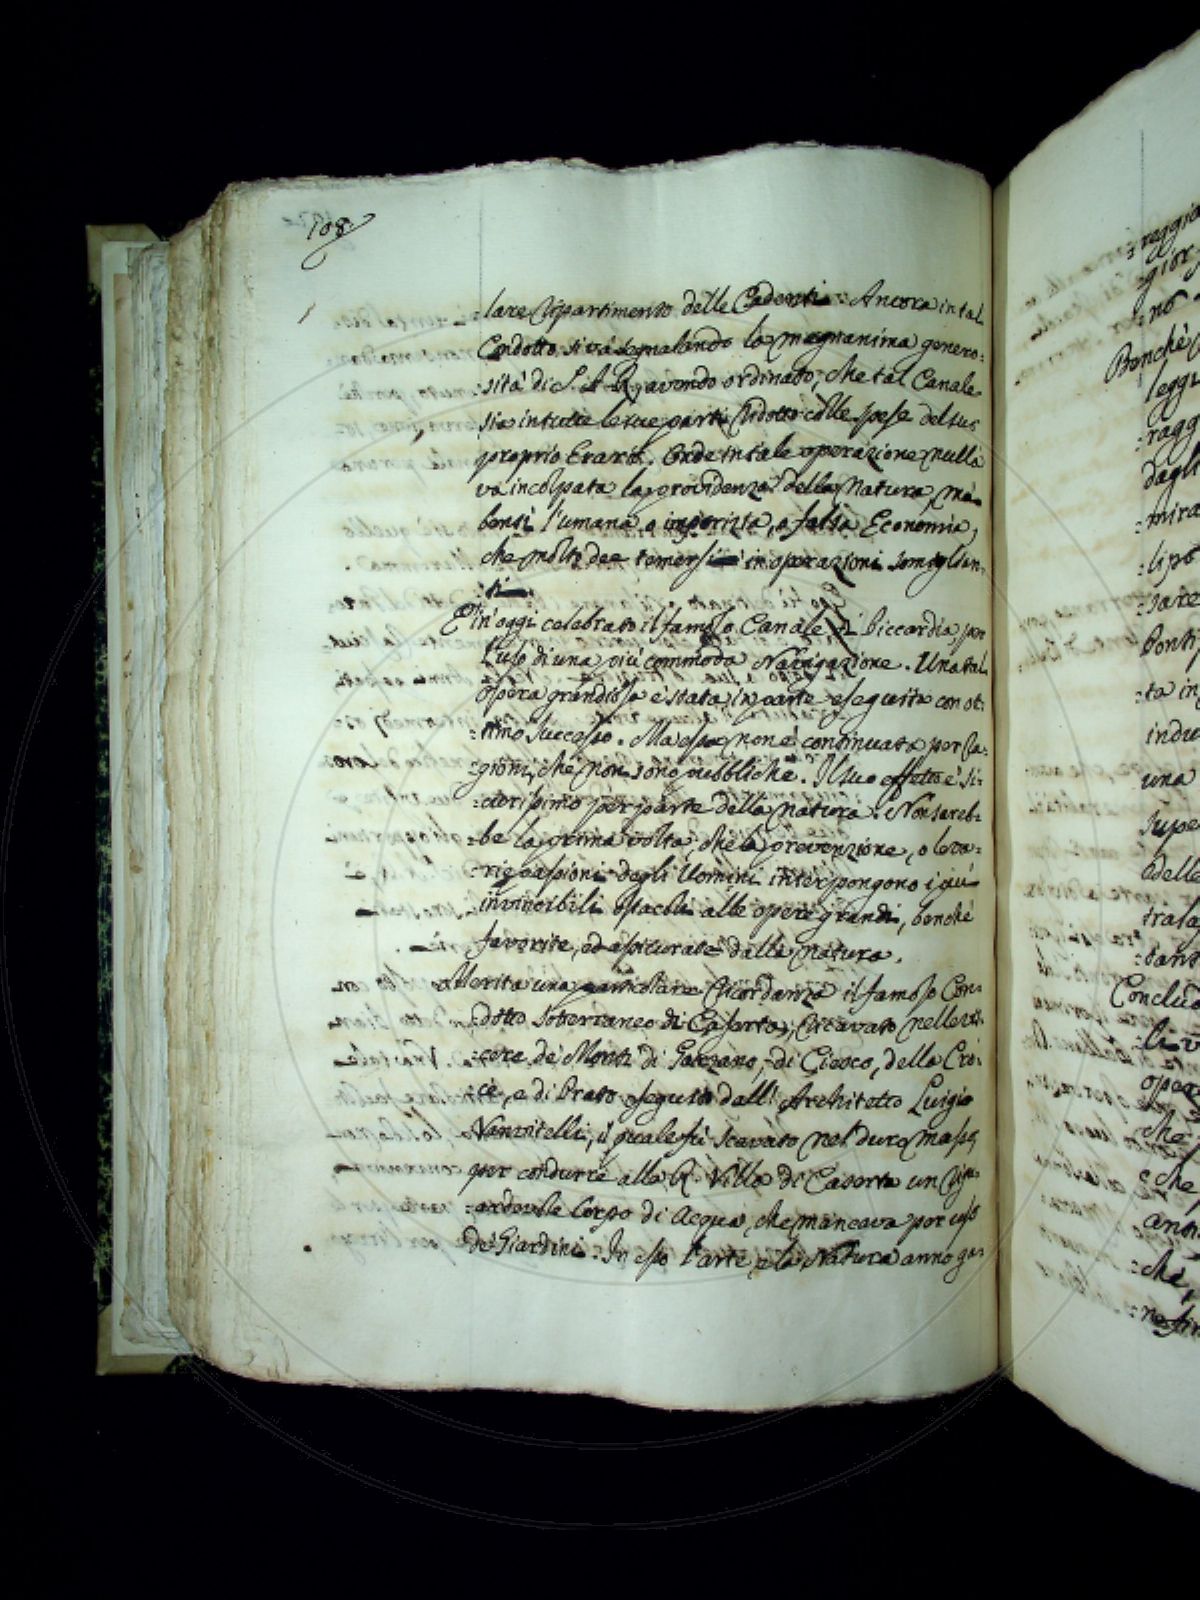 108.
lare ripartimento delle Cadenti. Ancora in tal
Condotto si và segnalando la magnanima genero:
:sità di S. A. R. avendo ordinato, che tal Canale
sia in tutte le sue parti ridotto colle spese del suo
proprio Erario. Onde in tale operazione nulla
và incolpata la providenza della Natura, mà
bensì l'umana, o imperizia, o falsa Economia,
che molto dee temersi in operazioni somiglian:
:ti.
E in oggi celebrato il famoso Canale di Piccardia, per
l'uso di una più commoda Navigazione. Una tal
opera grandiosa è stata in parte eseguita con ot:
:timo successo. Ma essa non è continuata per ra:
gioni, che non sono pubbliche. Il suo effetto è si:
:curissimo per parte della natura. Non sareb:
:be la prima volta, che la prevenzione, o le va:
:rie passioni degli Uomini interpongono i più
invincibili ostacoli alle opere grandi, benchè
favorite, ed assicurate dalla natura.
Merita una particolare ricordanza il famoso Con:
:dotto soterraneo di Caserta, ricavato nelle vi:
:scere de' Monti di Garzano, di Ciesco, della Cro:
ce, e di Prato eseguito dall' Architetto Luigio
Vanvitelli, il quale fù scavato nel duro masso,
per condurre alla R. Villa di Caserta un rigu:
:ardevole Corpo di Acqua, che mancava per uso
de' Giardini. In esso l'arte, e la Natura anno ga:
Benchè
leggi
:ragg
dagli
:mira
:sare
Ponti,
:ta in
indu
una
supe
:tant
Conclu
opera
che